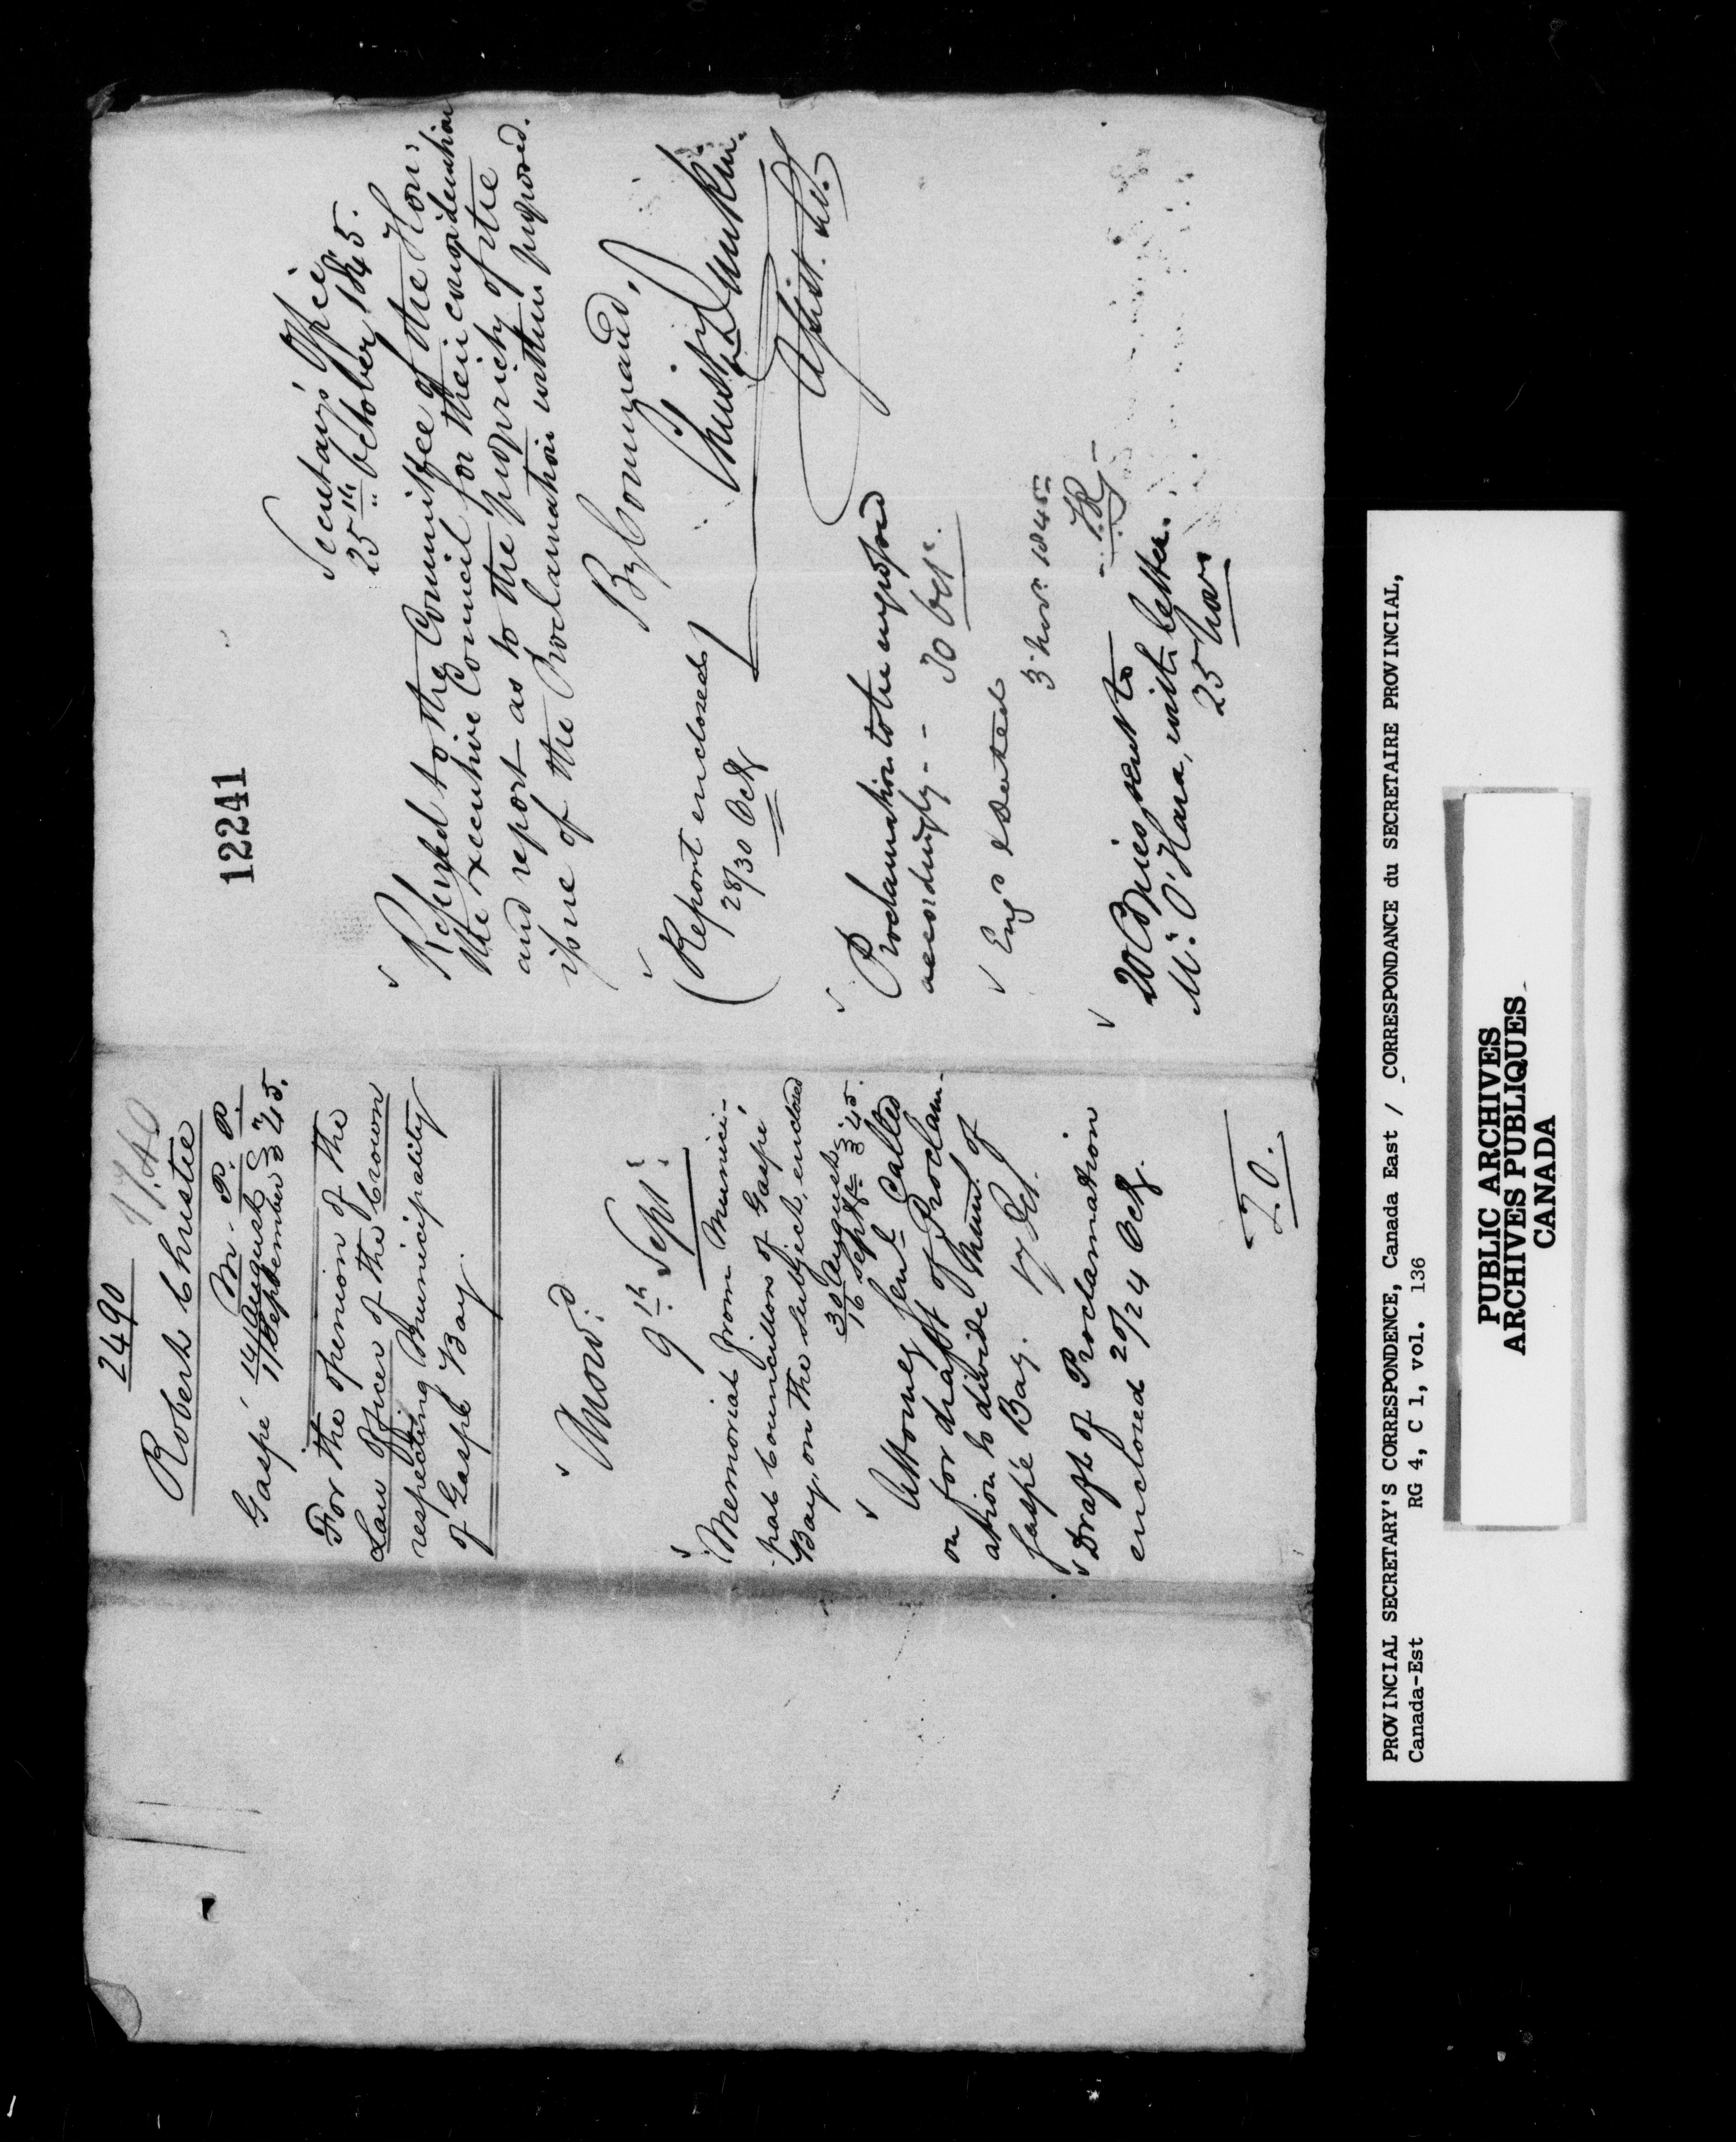 2490
1740
Robert Christie
M. P. P.
Gaspé 14 August } 45.
1 September }
For the opinion of the
Law Officer of the Crown
respecting Municipality
of Gaspé Bay.
Answd.
9th Septr.
Memorial from Munici-
pal Councillors of Gaspé
Bay, on the subject, enclosed
30 August } 45.
16 Septr }
Attorney Genl. Called
on for draft of Proclam-
ation to divide Munt. of
Gaspé Bay. 17 Oct.
Draft of Proclamation
enclosed 20/24 Octr.
12241
Secretary's Office,
25th October, 1845.
Referred to the Committee of the Hon:
the Executive Council for their consideration
and report as to the propriety of the
issue of the Proclamation within proposed.
By Command,
Christr Dunkin.
Assist. Sec.
(Report enclosed)
28/30 Octr
Proclamation to be engrossed
accordingly -- 30 Oct.
Engd & dated
3 Novr. 1845
20 Copies sent to
Mr. O'Hara, with letter.
25 Nov
PROVINCIAL SECRETARY'S CORRESPONDENCE, Canada East / CORRESPONDANCE du SECRETAIRE PROVINCIAL,
Canada-Est RG 4, C 1, vol. 136
PUBLIC ARCHIVES
ARCHIVES PUBLIQUES
CANADA